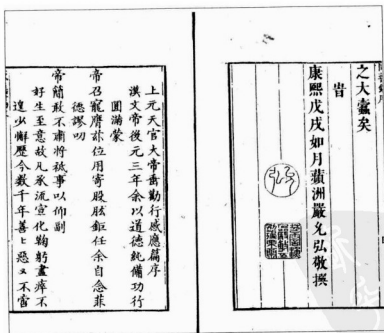 之大蠹矣
旹
康熙戊戌如月蘋洲嚴允弘敬撰
上元天官大帝垂勸行感應篇序
漢文帝後元三年余以道德純備功行
圓滿蒙
帝召寵膺詠位用寄股肱鉅任余自念菲
德謬叨
帝簡敢不肅將祗事以仰副
好生至意故凡承流宣化鞠躬盡瘁不
遑少懈歷今數千年善与惡又不啻